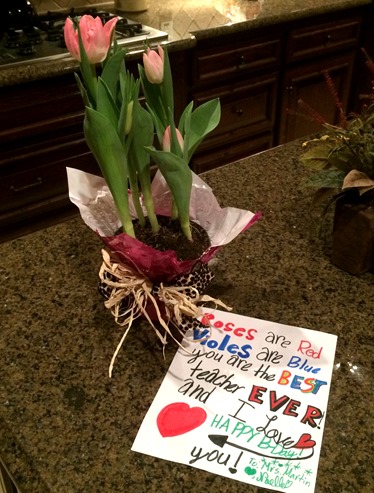 Roses are Red
Violes are Blue
you are the BEST
teacher EVER!
and I Love
HAPPY B-Day!
you!
To: Mrs. Martin